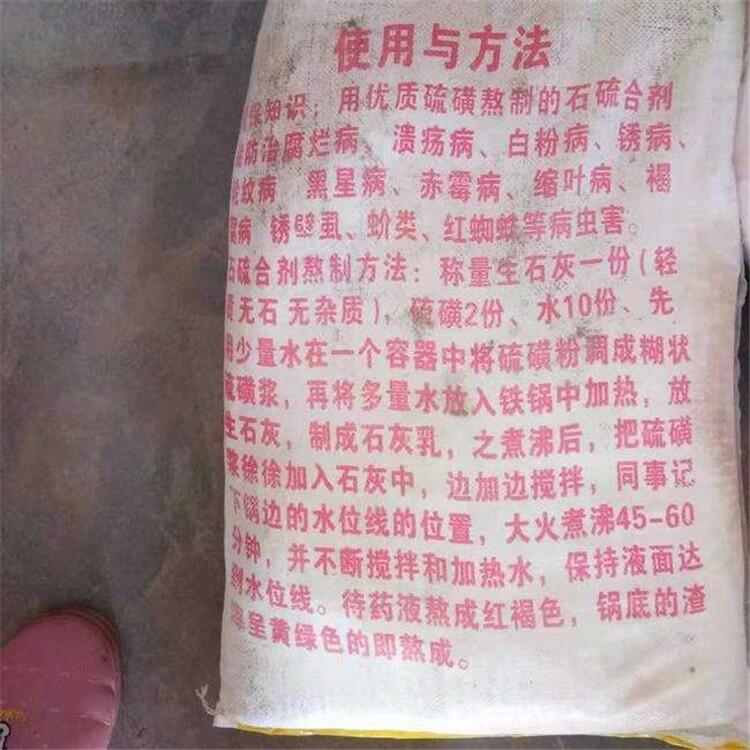 使用与方法
保知识；用优质硫磺熬制的石硫合剂
防治腐烂病 溃疡病、白粉病、锈病、
轮纹病 黑星病、赤霉病、缩叶病、褐
腐病 锈壁虱、蚧类、红蜘蛛等病虫害。
石硫合剂熬制方法：称量生石灰一份（轻
质无石 无杂质），硫磺2份、水10份、先
用少量水在一个容器中将硫磺粉调成糊状
硫磺浆，再将多量水放入铁锅中加热，放
生石灰，制成石灰乳，之煮沸后，把硫磺
浆徐徐加入石灰中，边加边搅拌，同事记
下锅边的水位线的位置，大火煮沸45-60
分钟，并不断搅拌和加热水，保持液面达
到水位线。待药液熬成红褐色，锅底的渣
呈黄绿色的即熬成。